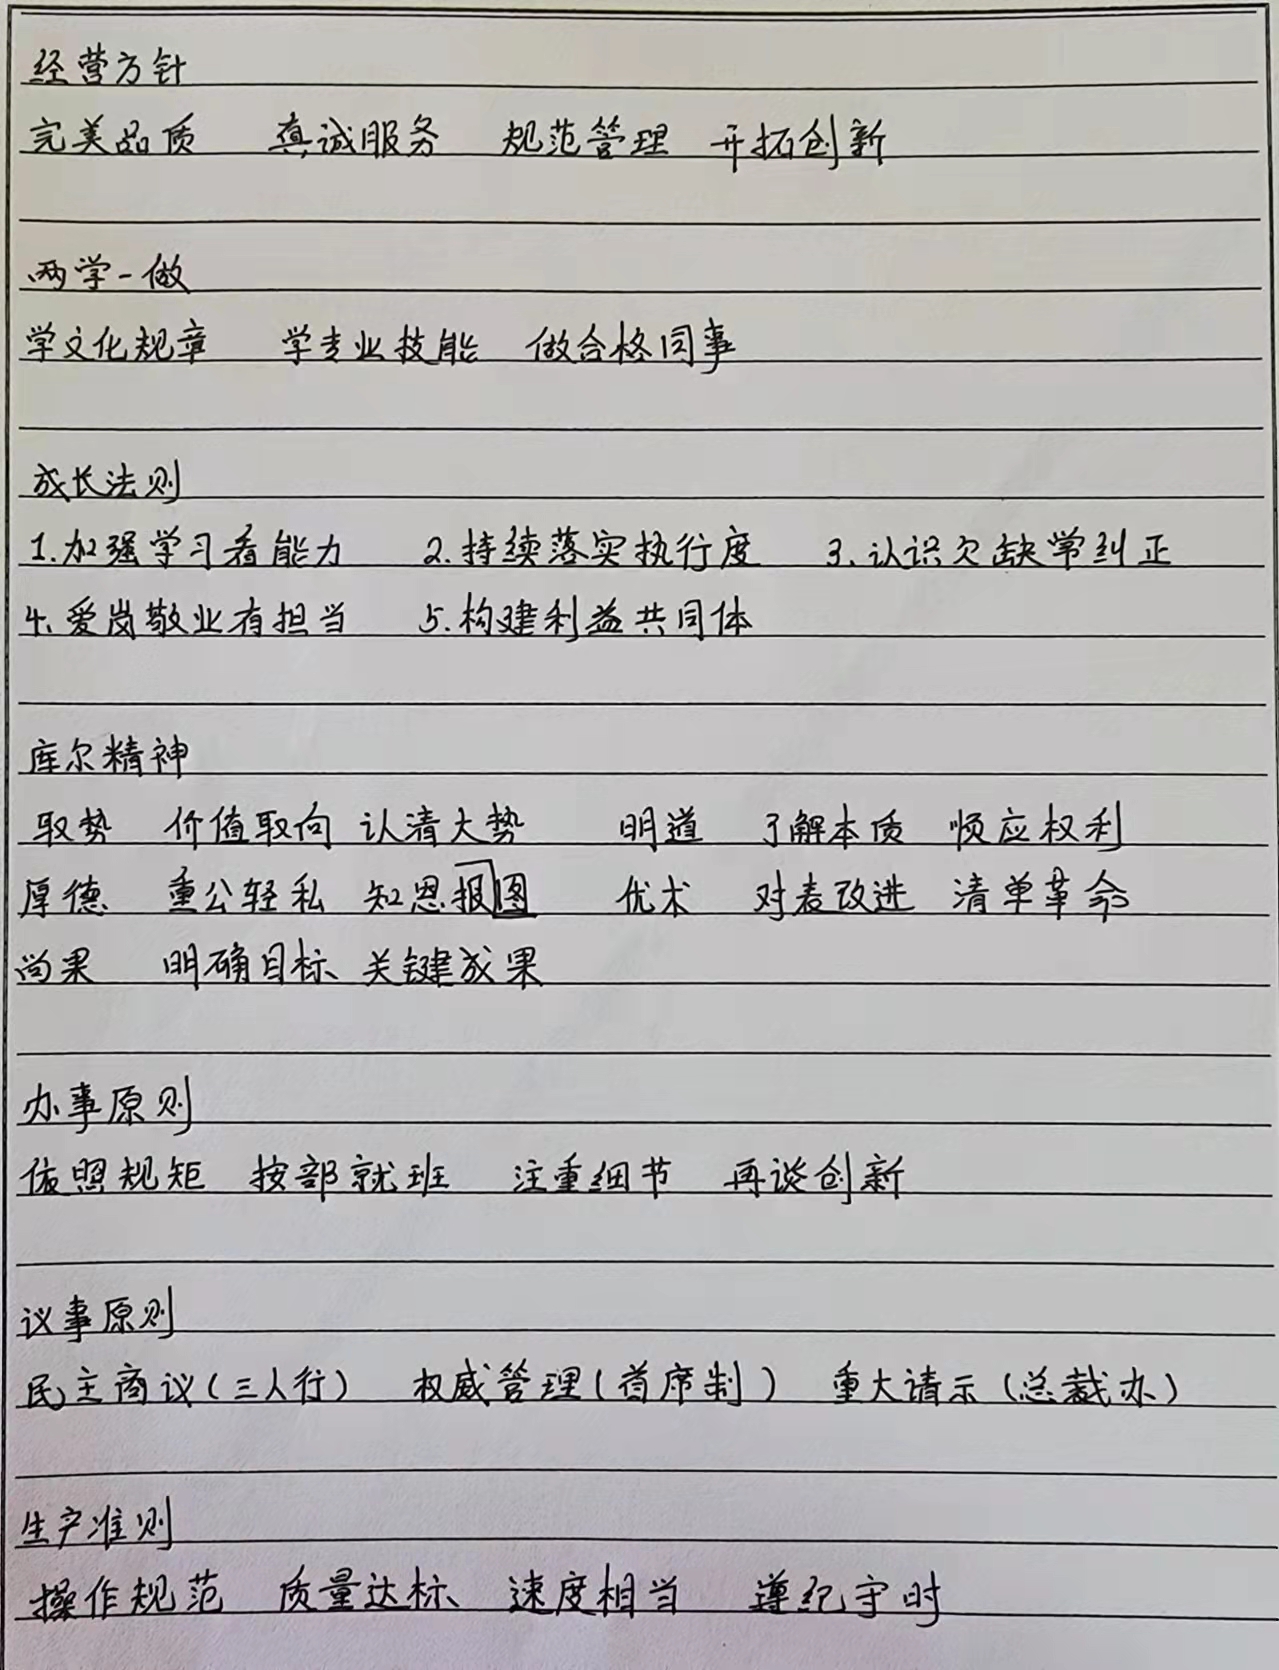 经营方针
完美品质 真诚服务 规范管理 开拓创新
两学一做
学文化规章 学专业技能 做合格同事
成长法则
1.加强学习看能力 2.持续落实执行度 3.认识欠缺常纠正
4.爱岗敬业有担当 5.构建利益共同体
库尔精神
取势 价值取向 认清大势 明道 了解本质 顺应权利
厚德 重公轻私 知恩报图 优术 对表改进 清单革命
尚果 明确目标 关键成果
办事原则
依照规矩 按部就班 注重细节 再谈创新
议事原则
民主商议(三人行) 权威管理(首席制) 重大请示(总裁办)
生产准则
操作规范 质量达标 速度相当 遵纪守时